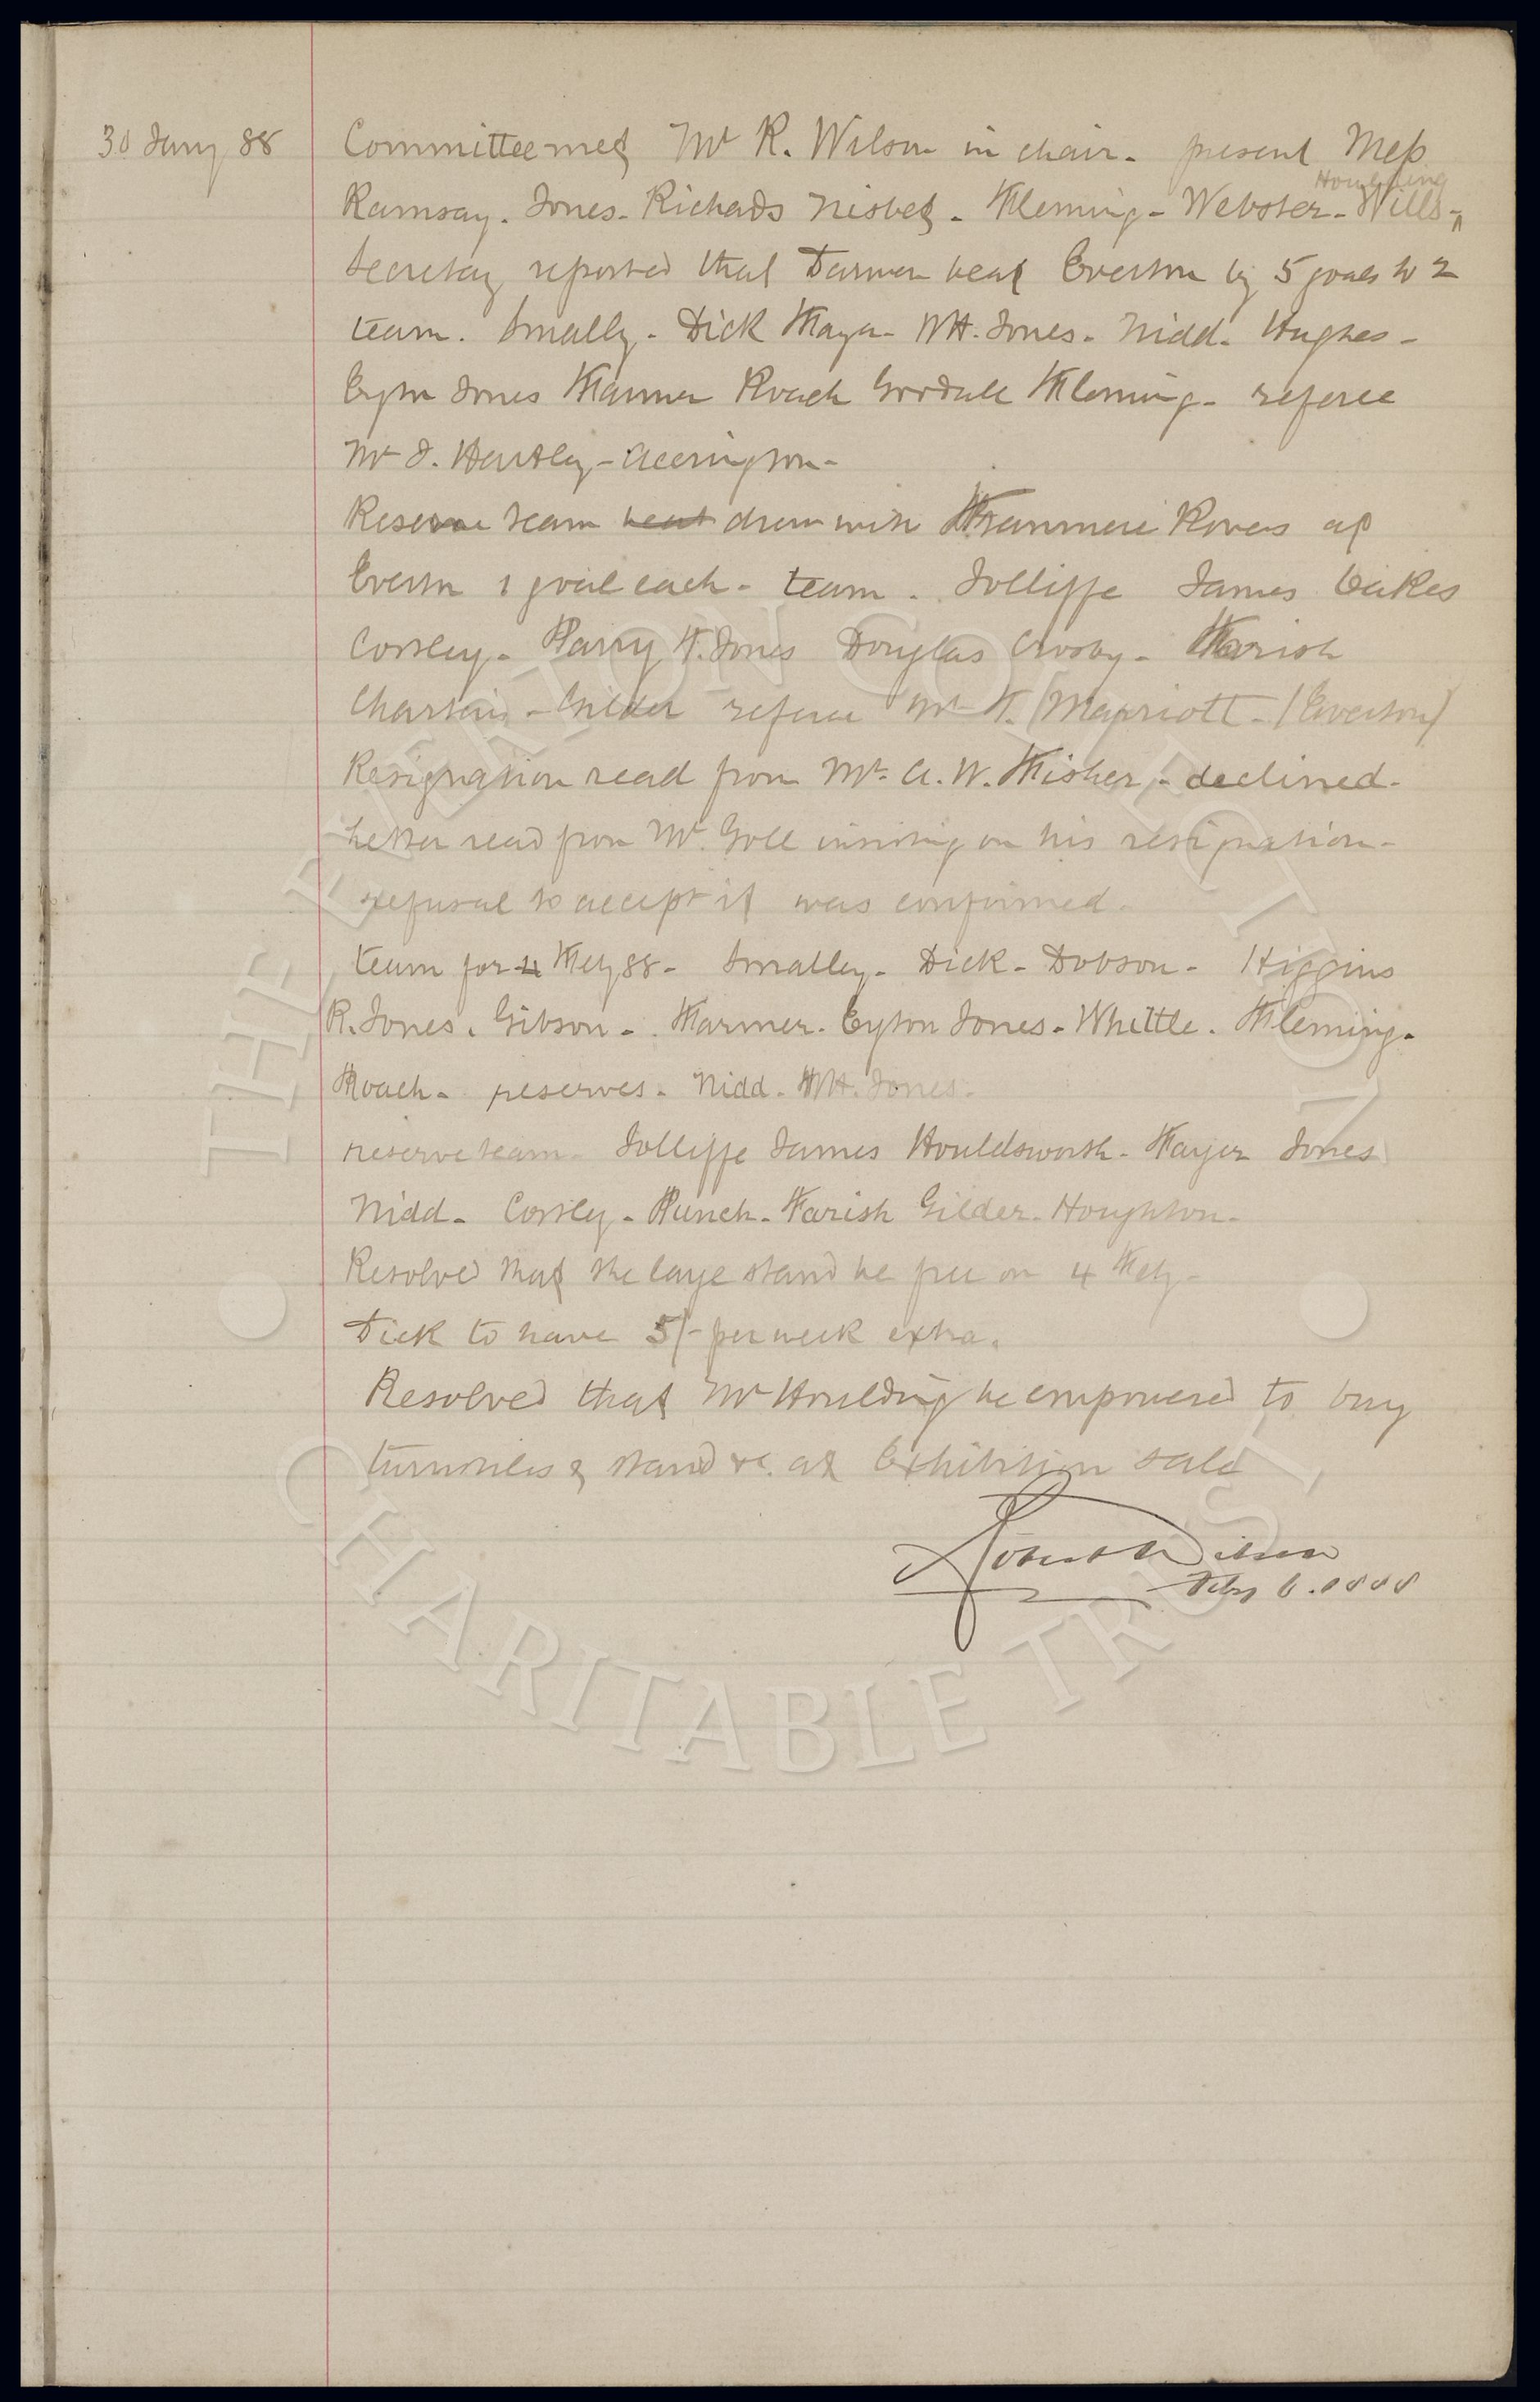 30 Jany 88
Committee met Mr R. Wilson in chair - present Mess
Ramsay - Jones - Richards Nisbet - Fleming - Webster - Wills - ^ Houlding
Secretary reported that Darwen beat Everton by 5 goals to 2
team. Smally - Dick Mayer - WH. Jones - Nidd - Hughes -
Eyton Jones Farmer Roach Goodall Fleming - referee
Mr J. Hartley - Accrington -
Reserve team beat drew with Tranmere Rovers at
Everton 1 goal each - team - Jolliffe James Oakes
Corsley - Parry T. Jones Douglas Crosby - Farish
Charters - Gilder referee Mr T. Marriott - (Everton)
Resignation read from Mr. A. W. Fisher - declined -
Letter read from Mr. Goll insisting on his resignation -
refusal to accept it was confirmed -
team for 4 Feby 88 - Smalley - Dick - Dobson - Higgins
R. Jones - Gibson - Farmer - Eyton Jones - Whittle - Fleming -
Roach - reserves - Nidd - WH. Jones -
reserve team - Jolliffe James Houldsworth - Fayer Jones
Nidd - Corsley - Punch - Farish Gilder - Houghton -
Resolved that the large stand be free on 4 Feby -
Dick to have 5/- per week extra.
Resolved that Mr Houlding be empowered to buy
turnstiles & stand &c. at Exhibition sale
Robert Wilson
Feby 6. 1888
THE EVERTON COLLECTION
CHARITABLE TRUST